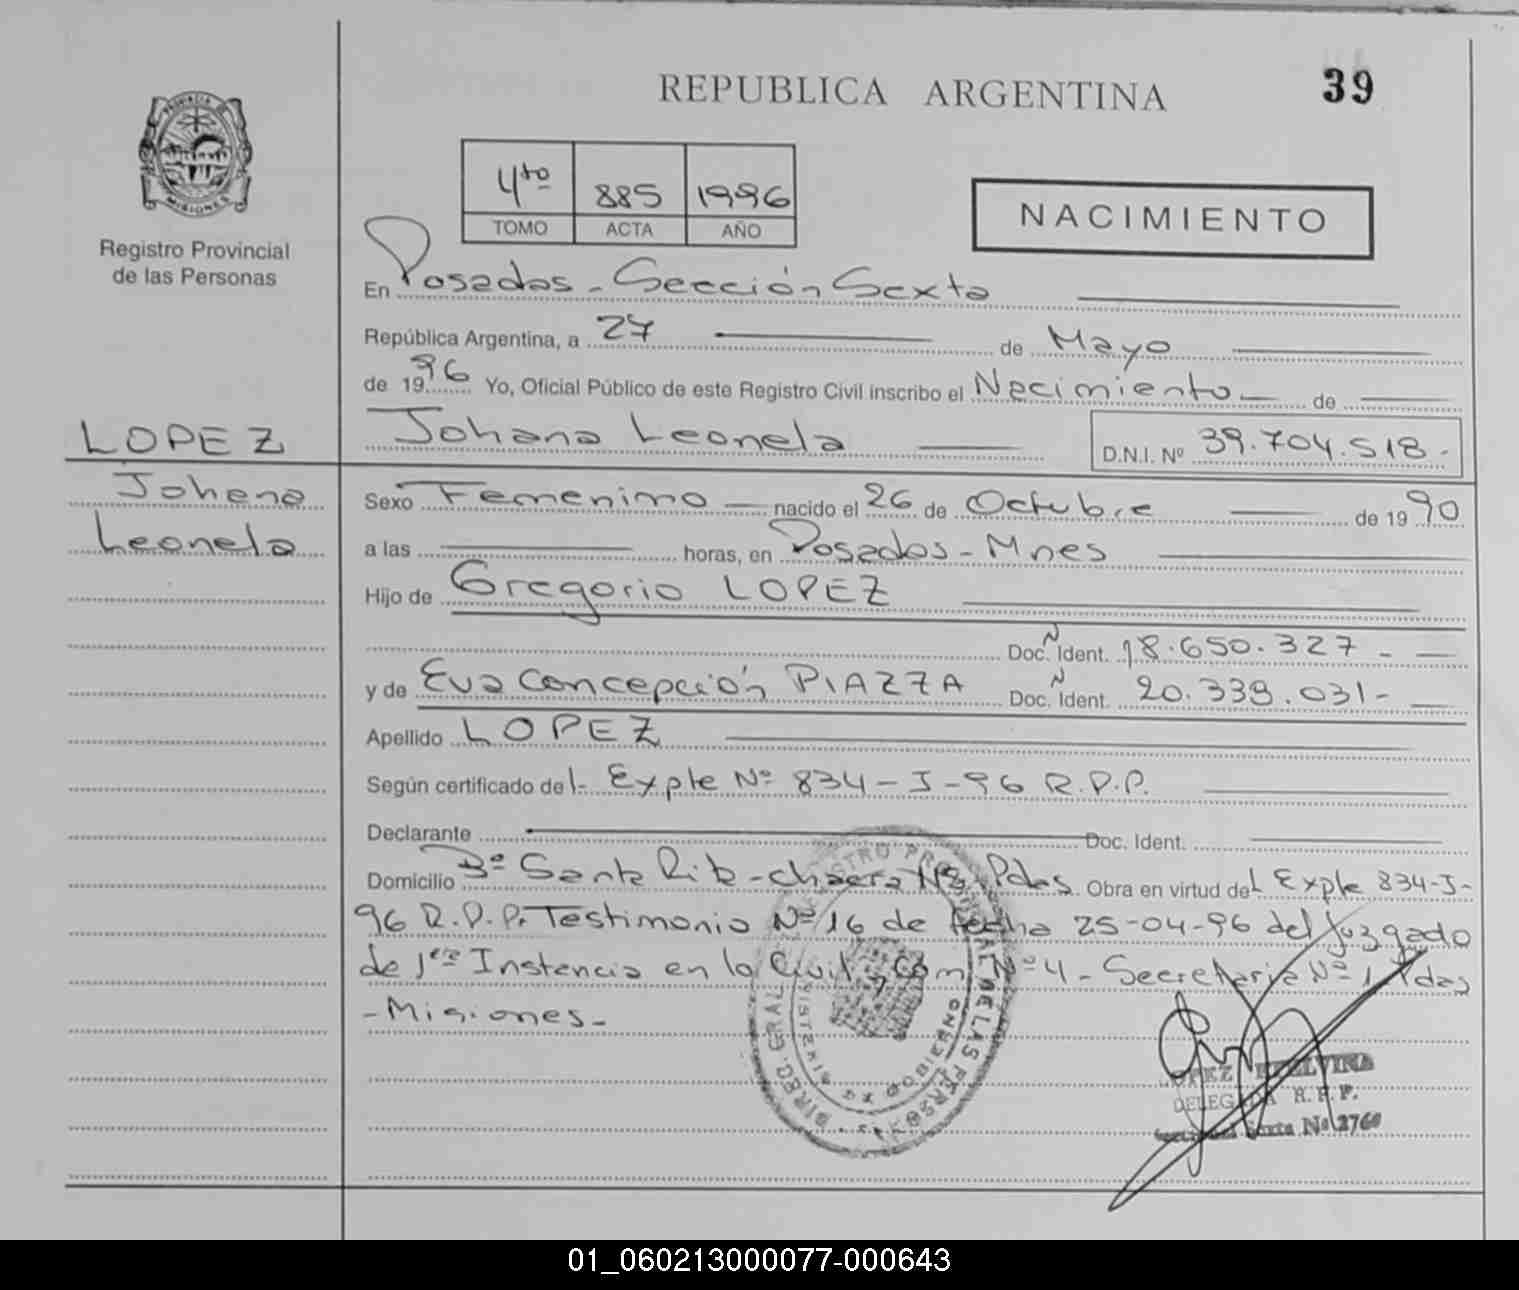 REPUBLICA ARGENTINA
39
4to 885 1996
TOMO ACTA AÑO
NACIMIENTO
PROVINCIA DE
MISIONES
Registro Provincial
de las Personas
LOPEZ
Johana
Leonela
En Posadas - Sección Sexta
República Argentina, a 27 de Mayo
de 1996 Yo, Oficial Público de este Registro Civil inscribo el Nacimiento de
Johana Leonela D.N.I. Nº 39.704.518.-
Sexo Femenino nacido el 26 de Octubre de 1990
a las horas, en Posadas - Mnes
Hijo de Gregorio LOPEZ
Doc. Ident. N 18.650.327 -
y de Eva Concepción PIAZZA Doc. Ident. N 20.339.031-
Apellido LOPEZ
Según certificado del- Expte Nº 834-J-96 R.P.P.
Declarante Doc. Ident.
Domicilio Bº Santa Rita - chacra Pdas Obra en virtud del Expte 834-J-
96 R.P.P. Testimonio Nº 16 de fecha 25-04-96 del Juzgado
de 1era Instancia en lo Civil y Com. Nº 4 - Secretaria Nº 1 Pdas
- Misiones -
LOPEZ ETELVINA
DELEGADA R.P.P.
Seccional Sexta Nº 2760
01_060213000077-000643